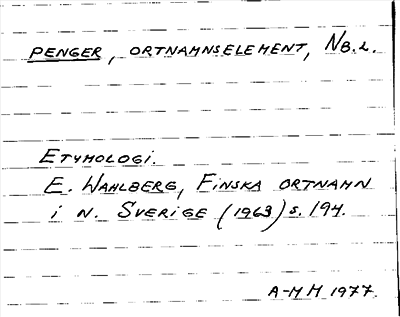 PENGER, ORTNAMNSELEMENT, NB.L.
ETYMOLOGI.
E. WAHLBERG, FINSKA ORTNAMN
i N. SVERIGE (1963) s. 194.
A-MM 1977.